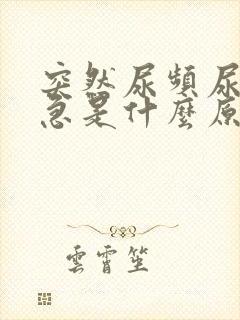 突然尿頻尿
急是什麼原
雲霄笙